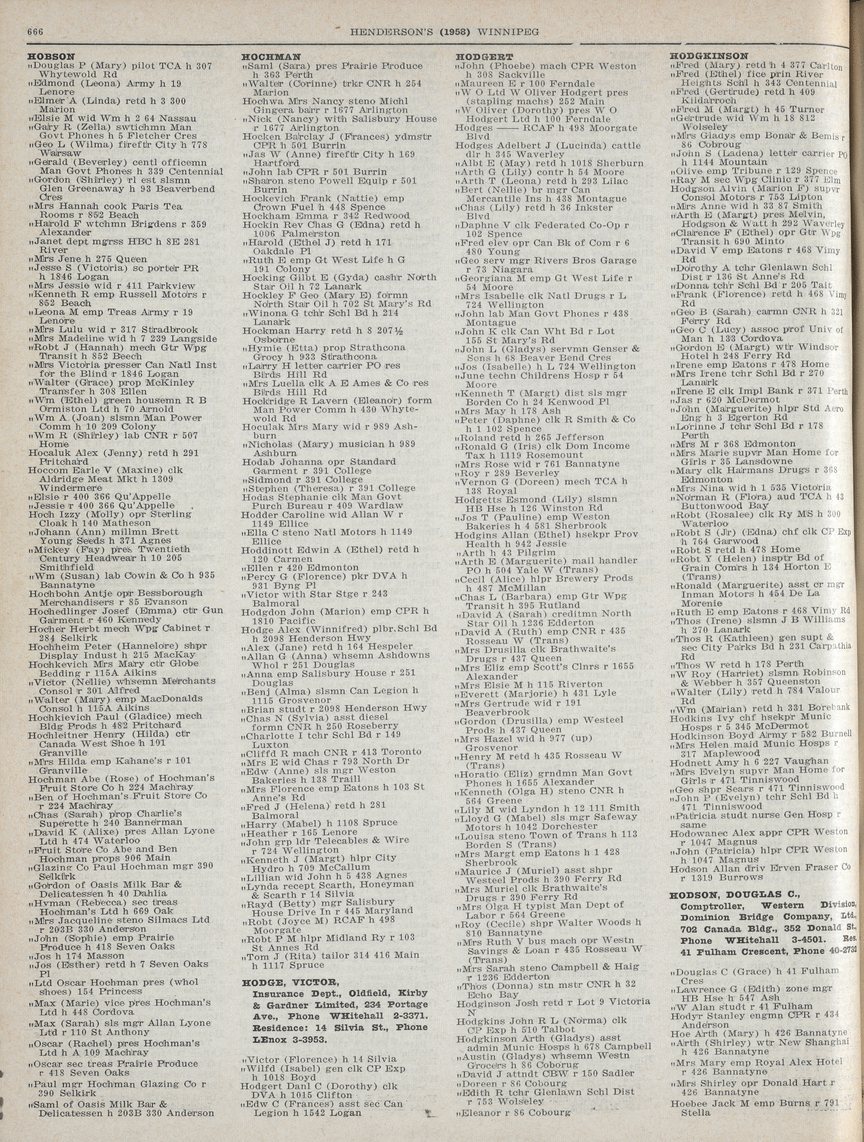 666
HENDERSON'S (1958) WINNIPEG
HOBSON
„Douglas P (Mary) pilot TCA h 307
Whytewold Rd
„Edmond (Leona) Army h 19
Lenore
„Elmer A (Linda) retd h 3 300
Marion
„Elsie M wid Wm h 2 64 Nassau
„Gary R (Zella) swtichmn Man
Govt Phones h 5 Fletcher Cres
„Geo L (Wilma) fireftr City h 778
Warsaw
„Gerald (Beverley) centl officemn
Man Govt Phones h 339 Centennial
„Gordon (Shirley) rl est slsmn
Glen Greenaway h 93 Beaverbend
Cres
„Mrs Hannah cook Paris Tea
Rooms r 852 Beach
„Harold F wtchmn Brigdens r 359
Alexander
„Janet dept mgrss HBC h 8E 281
River
„Mrs Jene h 275 Queen
„Jesse S (Victoria) sc porter PR
h 1846 Logan
„Mrs Jessie wid r 411 Parkview
„Kenneth R emp Russell Motors r
852 Beach
„Leona M emp Treas Army r 19
Lenore
„Mrs Lulu wid r 317 Stradbrook
„Mrs Madeline wid h 7 239 Langside
„Robt J (Hannah) mech Gtr Wpg
Transit h 852 Beech
„Mrs Victoria presser Can Natl Inst
for the Blind r 1846 Logan
„Walter (Grace) prop McKinley
Transfer h 308 Ellen
„Wm (Ethel) green housemn R B
Ormiston Ltd h 70 Arnold
„Wm A (Joan) slsmn Man Power
Comm h 10 209 Colony
„Wm R (Shirley) lab CNR r 507
Home
Hocaluk Alex (Jenny) retd h 291
Pritchard
Hoccom Earle V (Maxine) clk
Aldridge Meat Mkt h 1309
Windermere
„Elsie r 400 366 Qu'Appelle
„Jessie r 400 366 Qu'Appelle
Hoch Izzy (Molly) opr Sterling
Cloak h 140 Matheson
„Johann (Ann) millmn Brett
Young Seeds h 371 Agnes
„Mickey (Fay) pres Twentieth
Century Headwear h 10 205
Smithfield
„Wm (Susan) lab Cowin & Co h 935
Bannatyne
Hochbohn Antje opr Bessborough
Merchandisers r 85 Evanson
Hochedlinger Josef (Emma) ctr Gun
Garment r 460 Kennedy
Hocher Herbt mech Wpg Cabinet r
284 Selkirk
Hochheim Peter (Hannelore) shpr
Display Indust h 215 MacKay
Hochkevich Mrs Mary ctr Globe
Bedding r 115A Aikins
„Victor (Nellie) whsemn Merchants
Consol r 301 Alfred
„Walter (Mary) emp MacDonalds
Consol h 115A Aikins
Hochkievich Paul (Gladice) mech
Bldg Prods h 482 Pritchard
Hochleitner Henry (Hilda) ctr
Canada West Shoe h 191
Granville
„Mrs Hilda emp Kahane's r 101
Granville
Hochman Abe (Rose) of Hochman's
Fruit Store Co h 224 Machray
„Ben of Hochman's Fruit Store Co
r 224 Machray
„Chas (Sarah) prop Charlie's
Superette h 240 Bannerman
„David K (Alixe) pres Allan Lyone
Ltd h 474 Waterloo
„Fruit Store Co Abe and Ben
Hochman props 906 Main
„Glazing Co Paul Hochman mgr 390
Selkirk
„Gordon of Oasis Milk Bar &
Delicatessen h 40 Dahlia
„Hyman (Rebecca) sec treas
Hochman's Ltd h 669 Oak
„Mrs Jacqueline steno Silmacs Ltd
r 203B 330 Anderson
„John (Sophie) emp Prairie
Produce h 418 Seven Oaks
„Jos h 174 Masson
„Jos (Esther) retd h 7 Seven Oaks
Pl
„Ltd Oscar Hochman pres (whol
shoes) 154 Princess
„Max (Marie) vice pres Hochman's
Ltd h 448 Cordova
„Max (Sarah) sls mgr Allan Lyone
Ltd r 110 St Anthony
„Oscar (Rachel) pres Hochman's
Ltd h A 109 Machray
„Oscar sec treas Prairie Produce
r 418 Seven Oaks
„Paul mgr Hochman Glazing Co r
390 Selkirk
„Saml of Oasis Milk Bar &
Delicatessen h 203B 330 Anderson
HOCHMAN
„Saml (Sara) pres Prairie Produce
h 363 Perth
„Walter (Corinne) trkr CNR h 254
Marion
Hochwa Mrs Nancy steno Michl
Gingera barr r 1677 Arlington
„Nick (Nancy) with Salisbury House
r 1677 Arlington
Hocken Barclay J (Frances) ydmstr
CPR h 501 Burrin
„Jas W (Anne) fireftr City h 169
Hartford
„John lab CPR r 501 Burrin
„Sharon steno Powell Equip r 501
Burrin
Hockevich Frank (Nattie) emp
Crown Fuel h 448 Spence
Hockham Emma r 342 Redwood
Hockin Rev Chas G (Edna) retd h
1006 Palmerston
„Harold (Ethel J) retd h 171
Oakdale Pl
„Ruth E emp Gt West Life h G
191 Colony
Hocking Gilbt E (Gyda) cashr North
Star Oil h 72 Lanark
Hockley F Geo (Mary E) formn
North Star Oil h 702 St Mary's Rd
„Winona G tchr Schl Bd h 214
Lanark
Hockman Harry retd h 8 207½
Osborne
„Hymie (Etta) prop Strathcona
Grocy h 933 Strathcona
„Larry H letter carrier PO res
Birds Hill Rd
„Mrs Luella clk A E Ames & Co res
Birds Hill Rd
Hockridge R Lavern (Eleanor) form
Man Power Comm h 430 Whyte-
wold Rd
Hoculak Mrs Mary wid r 989 Ash-
burn
„Nicholas (Mary) musician h 989
Ashburn
Hodab Johanna opr Standard
Garment r 391 College
„Sidmond r 391 College
„Stephen (Theresa) r 391 College
Hodas Stephanie clk Man Govt
Purch Bureau r 409 Wardlaw
Hodder Caroline wid Allan W r
1149 Ellice
„Ella C steno Natl Motors h 1149
Ellice
Hoddinott Edwin A (Ethel) retd h
120 Carmen
„Ellen r 420 Edmonton
„Percy G (Florence) pkr DVA h
931 Byng Pl
„Victor with Star Stge r 243
Balmoral
Hodgdon John (Marion) emp CPR h
1810 Pacific
Hodge Alex (Winnifred) plbr.Schl Bd
h 2098 Henderson Hwy
„Alex (Jane) retd h 164 Hespeler
„Allan G (Anna) whsemn Ashdowns
Whol r 251 Douglas
„Anna emp Salisbury House r 251
Douglas
„Benj (Alma) slsmn Can Legion h
1115 Grosvenor
„Brian studt r 2098 Henderson Hwy
„Chas N (Sylvia) asst diesel
formn CNR h 250 Roseberry
„Charlotte 1 tchr Schl Bd r 149
Luxton
„Cliffd R mach CNR r 413 Toronto
„Mrs E wid Chas r 793 North Dr
„Edw (Anne) sls mgr Weston
Bakeries h 138 Traill
„Mrs Florence emp Eatons h 103 St
Anne's Rd
„Fred J (Helena) retd h 281
Balmoral
„Harry (Mabel) h 1108 Spruce
„Heather r 165 Lenore
„John grp ldr Telecables & Wire
r 724 Wellington
„Kenneth J (Margt) hlpr City
Hydro h 709 McCallum
„Lillian wid John h 5 438 Agnes
„Lynda recept Scarth, Honeyman
& Scarth r 14 Silvia
„Rayd (Betty) mgr Salisbury
House Drive In r 445 Maryland
„Robt (Joyce M) RCAF h 498
Moorgate
„Robt P M hlpr Midland Ry r 103
St Annes Rd
„Tom J (Rita) tailor 314 416 Main
h 1117 Spruce
HODGE, VICTOR,
Insurance Dept., Oldfield, Kirby
& Gardner Limited, 234 Portage
Ave., Phone WHitehall 2-3371.
Residence: 14 Silvia St., Phone
LEnox 3-3953.
„Victor (Florence) h 14 Silvia
„Wilfd (Isabel) gen clk CP Exp
h 1018 Boyd
Hodgert Danl C (Dorothy) clk
DVA h 1015 Clifton
„Edw C (Frances) asst sec Can
Legion h 1542 Logan
HODGERT
„John (Phoebe) mach CPR Weston
h 308 Sackville
„Maureen E r 100 Ferndale
„W O Ltd W Oliver Hodgert pres
(stapling machs) 252 Main
„W Oliver (Dorothy) pres W O
Hodgert Ltd h 100 Ferndale
Hodges —— RCAF h 498 Moorgate
Blvd
Hodges Adelbert J (Lucinda) cattle
dlr h 345 Waverley
„Albt E (May) retd h 1018 Sherburn
„Arth G (Lily) contr h 54 Moore
„Arth T (Leona) retd h 293 Lilac
„Bert (Nellie) br mgr Can
Mercantile Ins h 438 Montague
„Chas (Lily) retd h 36 Inkster
Blvd
„Daphne V clk Federated Co-Op r
102 Spence
„Fred elev opr Can Bk of Com r 6
480 Young
„Geo serv mgr Rivers Bros Garage
r 73 Niagara
„Georgiana M emp Gt West Life r
54 Moore
„Mrs Isabelle clk Natl Drugs r L
724 Wellington
„John lab Man Govt Phones r 438
Montague
„John K clk Can Wht Bd r Lot
155 St Mary's Rd
„John L (Gladys) servmn Genser &
Sons h 68 Beaver Bend Cres
„Jos (Isabelle) h L 724 Wellington
„June techn Childrens Hosp r 54
Moore
„Kenneth T (Margt) dist sls mgr
Borden Co h 24 Kenwood Pl
„Mrs May h 178 Ash
„Peter (Daphne) clk R Smith & Co
h 1 102 Spence
„Roland retd h 265 Jefferson
„Ronald G (Iris) clk Dom Income
Tax h 1119 Rosemount
„Mrs Rose wid r 761 Bannatyne
„Roy r 289 Beverley
„Vernon G (Doreen) mech TCA h
138 Royal
Hodgetts Esmond (Lily) slsmn
HB Hse h 126 Winston Rd
„Jos T (Pauline) emp Weston
Bakeries h 4 581 Sherbrook
Hodgins Allan (Ethel) hsekpr Prov
Health h 942 Jessie
„Arth h 43 Pilgrim
„Arth E (Marguerite) mail handler
PO h 504 Yale W (Trans)
„Cecil (Alice) hlpr Brewery Prods
h 487 McMillan
„Chas L (Barbara) emp Gtr Wpg
Transit h 395 Rutland
„David A (Sarah) creditmn North
Star Oil h 1236 Edderton
„David A (Ruth) emp CNR r 435
Rosseau W (Trans)
„Mrs Drusilla clk Brathwaite's
Drugs r 437 Queen
„Mrs Eliz emp Scott's Clnrs r 1655
Alexander
„Mrs Elsie M h 115 Riverton
„Everett (Marjorie) h 431 Lyle
„Mrs Gertrude wid r 191
Beaverbrook
„Gordon (Drusilla) emp Westeel
Prods h 437 Queen
„Mrs Hazel wid h 977 (up)
Grosvenor
„Henry M retd h 435 Rosseau W
(Trans)
„Horatio (Eliz) grndmn Man Govt
Phones h 1655 Alexander
„Kenneth (Olga H) steno CNR h
564 Greene
„Lily M wid Lyndon h 12 111 Smith
„Lloyd G (Mabel) sls mgr Safeway
Motors h 1042 Dorchester
„Louisa steno Town of Trans h 113
Borden S (Trans)
„Mrs Margt emp Eatons h 1 428
Sherbrook
„Maurice J (Muriel) asst shpr
Westeel Prods h 390 Ferry Rd
„Mrs Muriel clk Brathwaite's
Drugs r 390 Ferry Rd
„Mrs Olga H typist Man Dept of
Labor r 564 Greene
„Roy (Cecile) shpr Walter Woods h
810 Bannatyne
„Mrs Ruth V bus mach opr Westn
Savings & Loan r 435 Rosseau W
(Trans)
„Mrs Sarah steno Campbell & Haig
r 1236 Edderton
„Thos (Donna) stn mstr CNR h 32
Echo Bay
Hodginson Josh retd r Lot 9 Victoria
N
Hodgkins John R L (Norma) clk
CP Exp h 510 Talbot
Hodgkinson Arth (Gladys) asst
admin Munic Hosps h 678 Campbell
„Austin (Gladys) whsemn Westn
Grocers h 86 Coborug
„David J attndt CBW r 150 Sadler
„Doreen r 86 Cobourg
„Edith R tchr Glenlawn Schl Dist
r 753 Wolseley
„Eleanor r 86 Cobourg
HODGKINSON
„Fred (Mary) retd h 4 377 Carlton
„Fred (Ethel) fice prin River
Heights Schl h 343 Centennial
„Fred (Gertrude) retd h 409
Kildarroch
„Fred M (Margt) h 45 Turner
„Gertrude wid Wm h 18 812
Wolseley
„Mrs Gladys emp Bonar & Bemis r
86 Cobroug
„John S (Ladena) letter carrier PO
h 1144 Mountain
„Olive emp Tribune r 129 Spence
„Ray M sec Wpg Clinic r 377 Elm
Hodgson Alvin (Marion F) supvr
Consol Motors r 753 Lipton
„Mrs Anne wid h 33 87 Smith
„Arth E (Margt) pres Melvin,
Hodgson & Watt h 292 Waverley
„Clarence F (Ethel) opr Gtr Wpg
Transit h 690 Minto
„David V emp Eatons r 468 Vimy
Rd
„Dorothy A tchr Glenlawn Schl
Dist r 136 St Anne's Rd
„Donna tchr Schl Bd r 205 Tait
„Frank (Florence) retd h 468 Vimy
Rd
„Geo B (Sarah) carmn CNR h 321
Ferry Rd
„Geo C (Lucy) assoc prof Univ of
Man h 133 Cordova
„Gordon E (Margt) wtr Windsor
Hotel h 248 Ferry Rd
„Irene emp Eatons r 478 Home
„Mrs Irene tchr Schl Bd r 270
Lanark
„Irene E clk Impl Bank r 371 Perth
„Jas r 620 McDermot
„John (Marguerite) hlpr Std Aero
Eng h 3 Egerton Rd
„Lorinne J tchr Schl Bd r 178
Perth
„Mrs M r 368 Edmonton
„Mrs Marie supvr Man Home for
Girls r 35 Lansdowne
„Mary clk Hairmans Drugs r 368
Edmonton
„Mrs Nina wid h 1 535 Victoria
„Norman R (Flora) aud TCA h 43
Buttonwood Bay
„Robt (Rosalee) clk Ry MS h 300
Waterloo
„Robt S (Jr) (Edna) chf clk CP Exp
h 764 Garwood
„Robt S retd h 478 Home
„Robt Y (Helen) insptr Bd of
Grain Comrs h 134 Horton E
(Trans)
„Ronald (Marguerite) asst cr mgr
Inman Motors h 454 De La
Morenie
„Ruth E emp Eatons r 468 Vimy Rd
„Thos (Irene) slsmn J B Williams
h 270 Lanark
„Thos R (Kathleen) gen supt &
sec City Parks Bd h 231 Carpathia
Rd
„Thos W retd h 178 Perth
„W Roy (Harriet) slsmn Robinson
& Webber h 357 Queenston
„Walter (Lily) retd h 784 Valour
Rd
„Wm (Marian) retd h 331 Borebank
Hodkins Ivy chf hsekpr Munic
Hosps r 5 345 McDermot
Hodkinson Boyd Army r 582 Burnell
„Mrs Helen maid Munic Hosps r
317 Maplewood
Hodnett Amy h 6 227 Vaughan
„Mrs Evelyn supvr Man Home for
Girls r 471 Tinniswood
„Geo shpr Sears r 471 Tinniswood
„John P (Evelyn) tchr Schl Bd h
471 Tinniswood
„Patricia studt nurse Gen Hosp r
same
Hodowanec Alex appr CPR Weston
r 1047 Magnus
„John (Patricia) hlpr CPR Weston
h 1047 Magnus
Hodson Allan driv Erven Fraser Co
r 1319 Burrows
HODSON, DOUGLAS C.,
Comptroller, Western Division,
Dominion Bridge Company, Ltd.,
702 Canada Bldg., 352 Donald St.,
Phone WHitehall 3-4501. Res.
41 Fulham Crescent, Phone 40-2732
„Douglas C (Grace) h 41 Fulham
Cres
„Lawrence G (Edith) zone mgr
HB Hse h 547 Ash
„W Alan studt r 41 Fulham
Hodyr Stanley engmn CPR r 434
Anderson
Hoe Arth (Mary) h 426 Bannatyne
„Arth (Shirley) wtr New Shanghai
h 426 Bannatyne
„Mrs Mary emp Royal Alex Hotel
r 426 Bannatyne
„Mrs Shirley opr Donald Hart r
426 Bannatyne
Hoebee Jack M emp Burns r 791
Stella